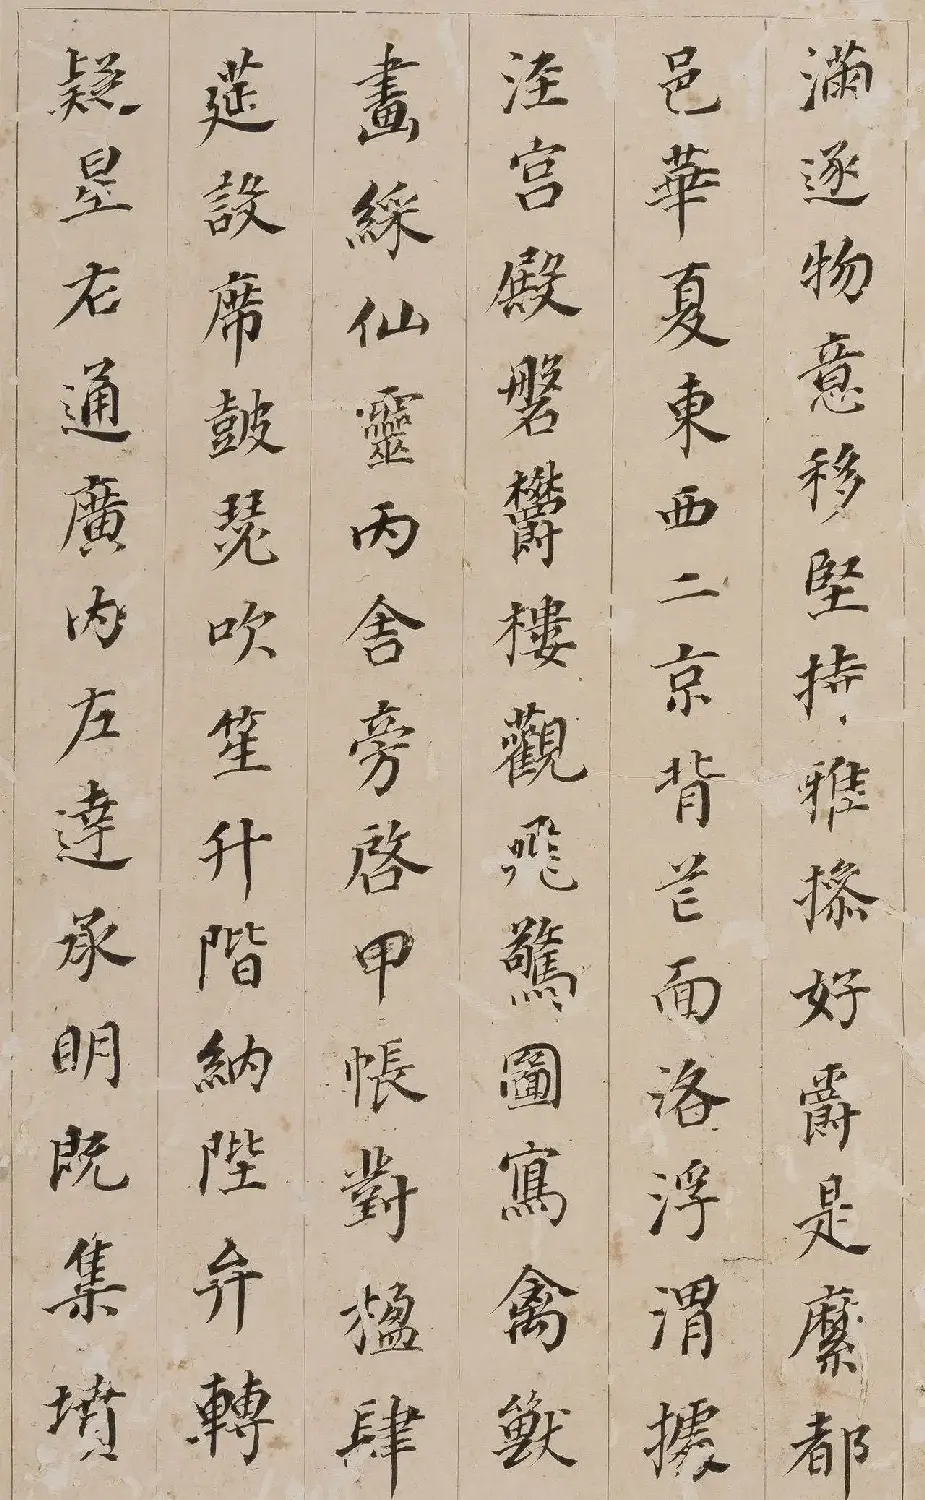 滿逐物意移堅持雅操好爵是縻都
邑華夏東西二京背芒面洛浮渭據
涇宫殿磐鬱樓觀飛驚圖寫禽獸
畫綵仙靈丙舍旁啓甲帳對楹肆
筵設席鼓瑟吹笙升階納陛弁轉
疑星右通廣内左達承明既集墳